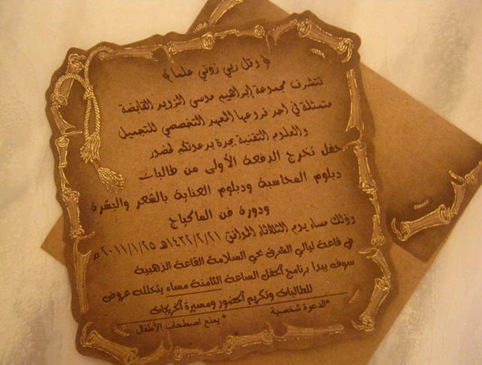 ﴿ وقل ربي زوني علما ﴾
تتشرف مجموعة إبراهيم موسى الزويد القابضة
متمثلة في أحد فروعها المعهد التخصصي للتجميل
والعلوم التقنية بجدة بدعوتكم لحضور
حفل تخرج الدفعة الأولى من طالبات
دبلوم المحاسبة ودبلوم العناية بالشعر والبشرة
ودورة فن الماكياج
وذلك مساء يوم الثلاثاء الموافق ١٤٣٢/٢/٢١هـ ٢٠١١/١/٢٥ م
في قاعة ليالي الشرق بحي السلامة القاعة الذهبية
سوف يبدأ برنامج الحفل الساعة الثامنة مساء يتخلله عروض
للطالبات وتكريم الحضور ومسيرة الخريجات
*الدعوة شخصية *يمنع اصطحاب الأطفال